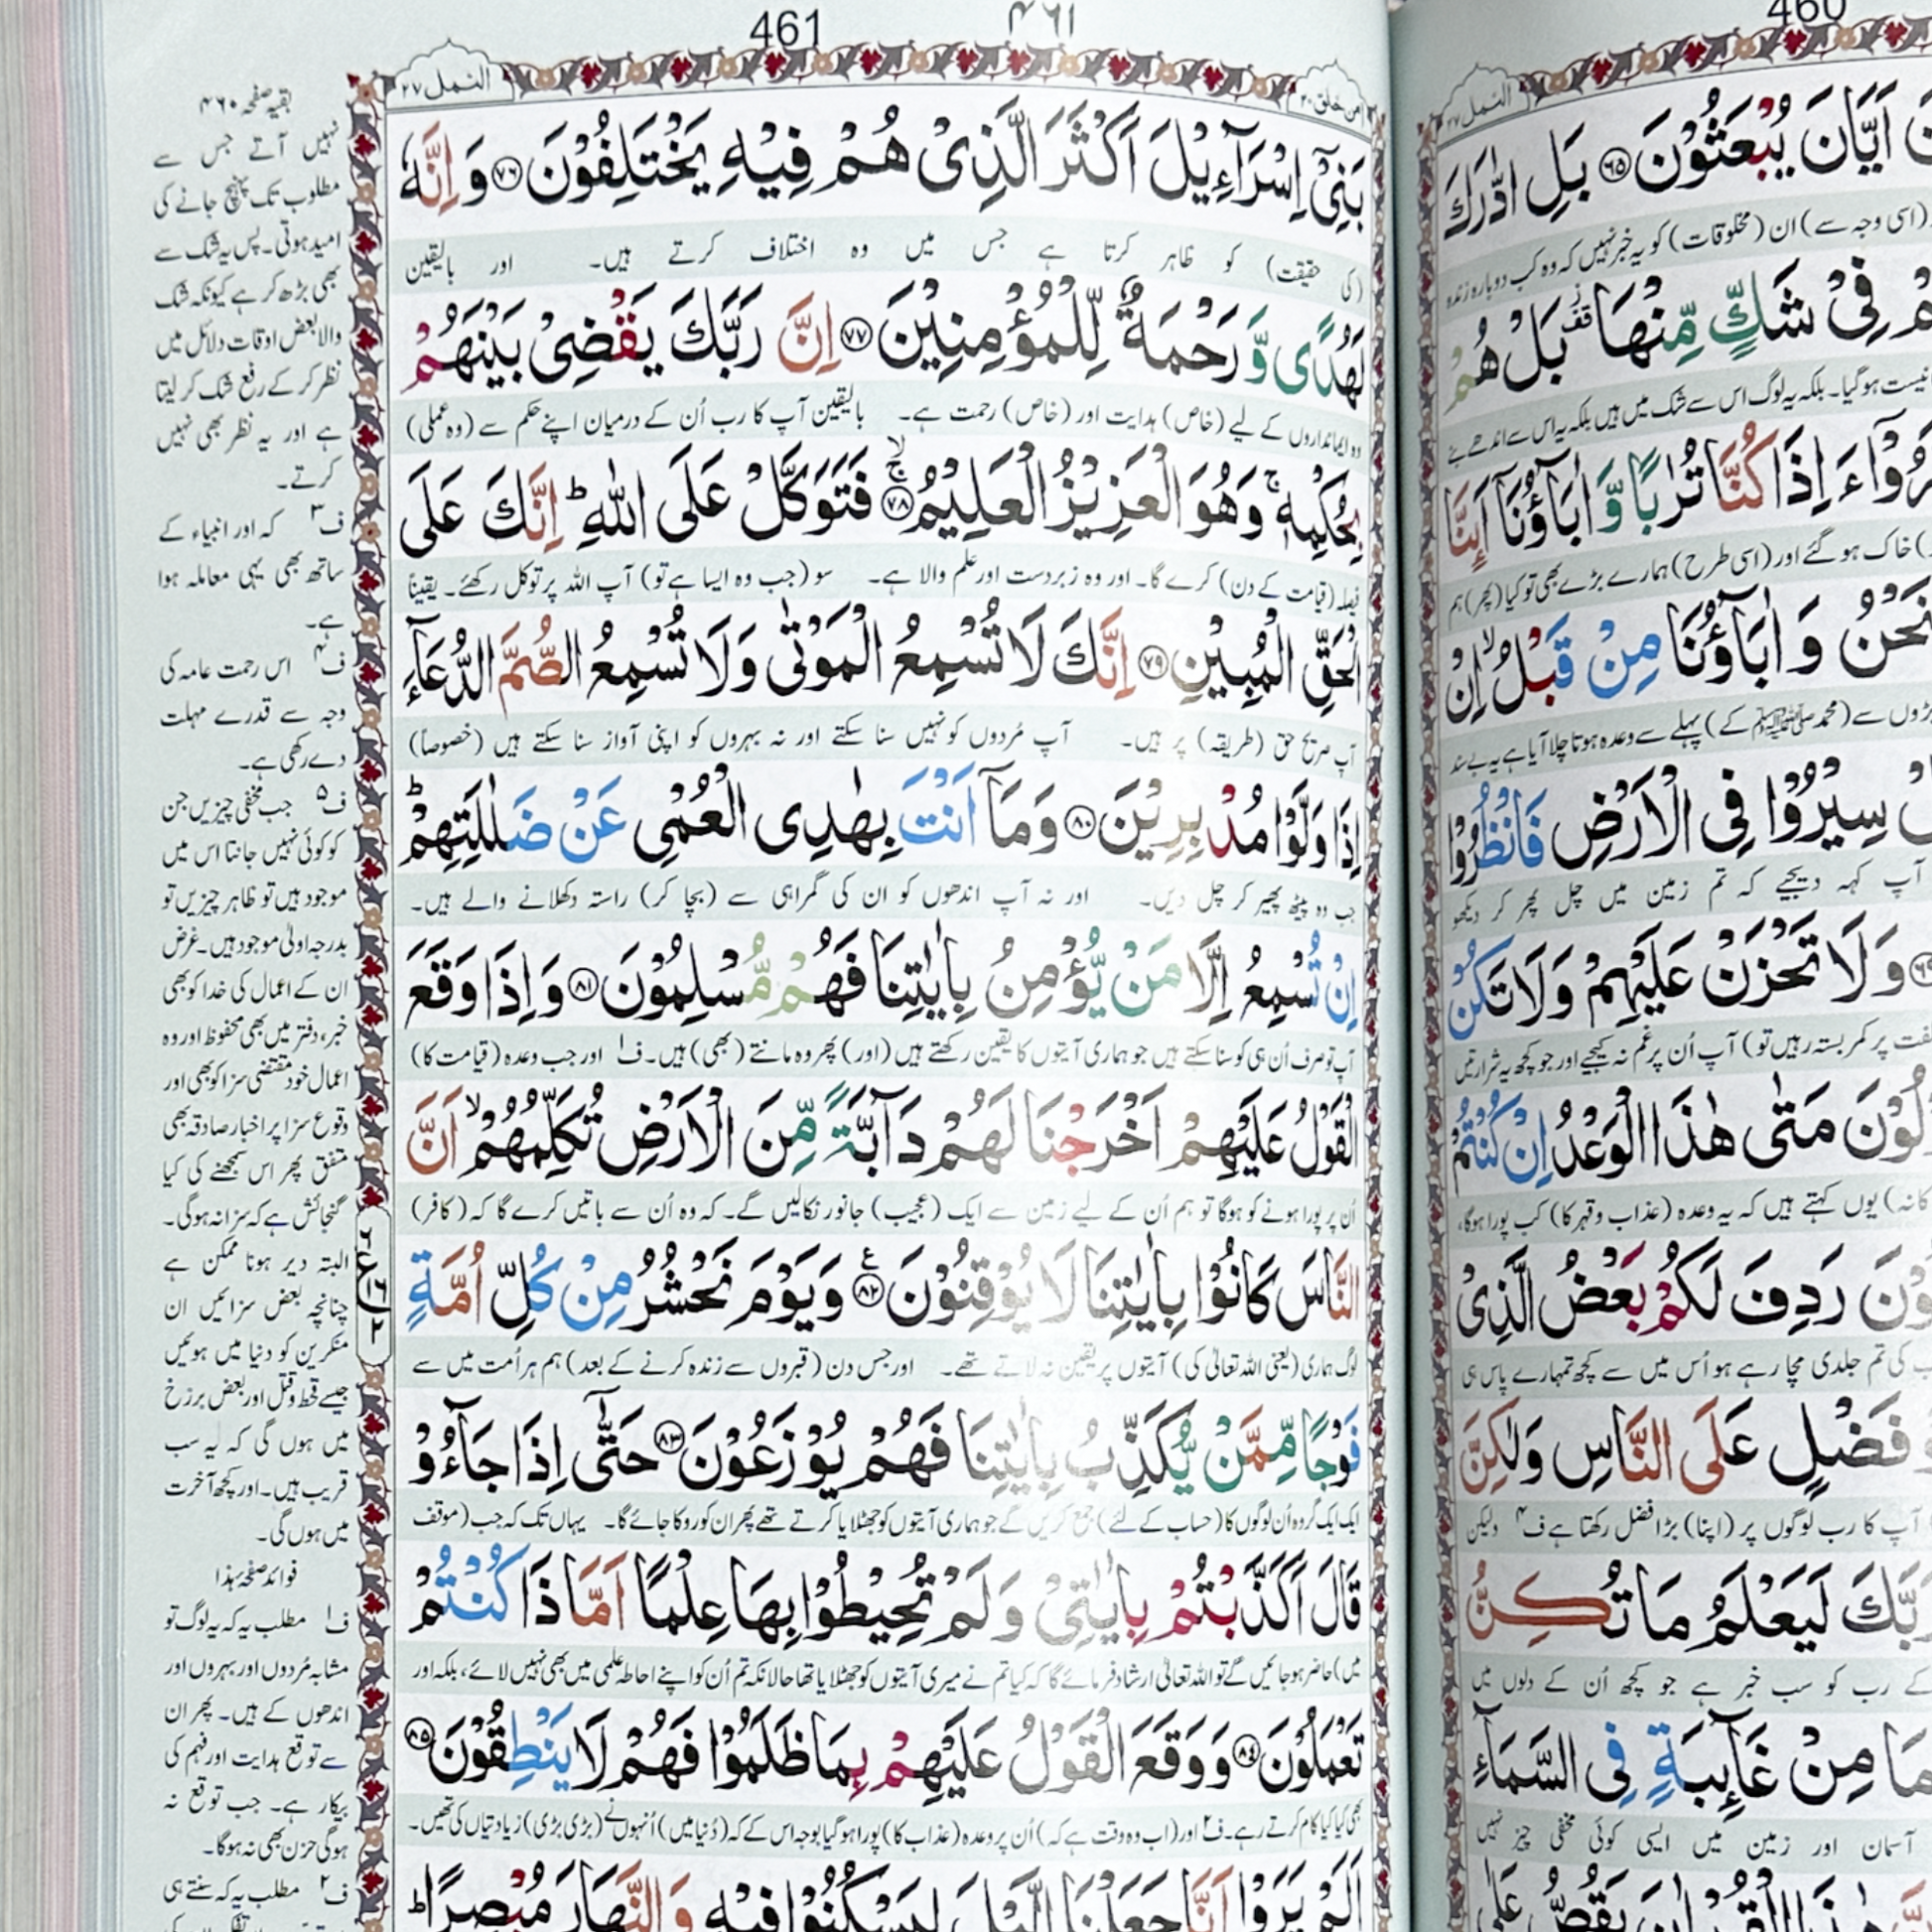 461
۴۶۱
النمل ۲۷
امن خلق ۲۰
بَنِیْۤ اِسْرَآءِیْلَ اَكْثَرَ الَّذِیْ هُمْ فِیْهِ یَخْتَلِفُوْنَ ۝۷۶ وَ اِنَّهٗ
(کی حقیقت) کو ظاہر کرتا ہے جس میں وہ اختلاف کرتے ہیں۔ اور بالیقین
لَهُدًی وَّ رَحْمَةٌ لِّلْمُؤْمِنِیْنَ ۝۷۷ اِنَّ رَبَّكَ یَقْضِیْ بَیْنَهُمْ
وہ ایمانداروں کے لیے (خاص) ہدایت اور (خاص) رحمت ہے۔ بالیقین آپ کا رب اُن کے درمیان اپنے حکم سے (وہ عملی)
بِحُكْمِهٖ ۚ وَ هُوَ الْعَزِیْزُ الْعَلِیْمُ ۝۷۸ فَتَوَكَّلْ عَلَی اللّٰهِ ؕ اِنَّكَ عَلَی
فیصلہ (قیامت کے دن) کرے گا۔ اور وہ زبردست اور علم والا ہے۔ سو (جب وہ ایسا ہے تو) آپ اللہ پر توکل رکھئے۔ یقیناً
الْحَقِّ الْمُبِیْنِ ۝۷۹ اِنَّكَ لَا تُسْمِعُ الْمَوْتٰی وَ لَا تُسْمِعُ الصُّمَّ الدُّعَآءَ
آپ صریح حق (طریقہ) پر ہیں۔ آپ مُردوں کو نہیں سنا سکتے اور نہ بہروں کو اپنی آواز سنا سکتے ہیں (خصوصاً)
اِذَا وَلَّوْا مُدْبِرِیْنَ ۝۸۰ وَ مَاۤ اَنْتَ بِهٰدِی الْعُمْیِ عَنْ ضَلٰلَتِهِمْ ؕ
جب وہ پیٹھ پھیر کر چل دیں۔ اور نہ آپ اندھوں کو ان کی گمراہی سے (بچا کر) راستہ دکھلانے والے ہیں۔
اِنْ تُسْمِعُ اِلَّا مَنْ یُّؤْمِنُ بِاٰیٰتِنَا فَهُمْ مُّسْلِمُوْنَ ۝۸۱ وَ اِذَا وَقَعَ
آپ تو صرف اُن ہی کو سنا سکتے ہیں جو ہماری آیتوں کا یقین رکھتے ہیں (اور) پھر وہ مانتے (بھی) ہیں۔ ف۱ اور جب وعدہ (قیامت کا)
الْقَوْلُ عَلَیْهِمْ اَخْرَجْنَا لَهُمْ دَآبَّةً مِّنَ الْاَرْضِ تُكَلِّمُهُمْ ۙ اَنَّ
اُن پر پورا ہونے کو ہوگا تو ہم اُن کے لیے زمین سے ایک (عجیب) جانور نکالیں گے۔ کہ وہ اُن سے باتیں کرے گا کہ (کافر)
النَّاسَ كَانُوْا بِاٰیٰتِنَا لَا یُوْقِنُوْنَ ۝۸۲ وَ یَوْمَ نَحْشُرُ مِنْ كُلِّ اُمَّةٍ
لوگ ہماری (یعنی اللہ تعالیٰ کی) آیتوں پر یقین نہ لاتے تھے۔ اور جس دن (قبروں سے زندہ کرنے کے بعد) ہم ہر اُمت میں سے
فَوْجًا مِّمَّنْ یُّكَذِّبُ بِاٰیٰتِنَا فَهُمْ یُوْزَعُوْنَ ۝۸۳ حَتّٰۤی اِذَا جَآءُوْ
ایک ایک گروہ اُن لوگوں کا (حساب کے لئے) جمع کریں گے جو ہماری آیتوں کو جھٹلایا کرتے تھے پھر ان کو روکا جائے گا۔ یہاں تک کہ جب (موقف
قَالَ اَكَذَّبْتُمْ بِاٰیٰتِیْ وَ لَمْ تُحِیْطُوْا بِهَا عِلْمًا اَمَّا ذَا كُنْتُمْ
میں) حاضر ہو جائیں گے تو اللہ تعالیٰ ارشاد فرمائے گا کہ کیا تم نے میری آیتوں کو جھٹلایا تھا حالانکہ تم اُن کو اپنے احاطہ علمی میں بھی نہیں لائے، بلکہ اور
تَعْمَلُوْنَ ۝۸۴ وَ وَقَعَ الْقَوْلُ عَلَیْهِمْ بِمَا ظَلَمُوْا فَهُمْ لَا یَنْطِقُوْنَ ۝۸۵
بھی کیا کیا کام کرتے رہے۔ ف۲ اور (اب وہ وقت ہے کہ) اُن پر وعدہ (عذاب کا) پورا ہوگیا بوجہ اس کے کہ (دُنیا میں) اُنہوں نے (بڑی بڑی) زیادتیاں کی تھیں۔
اَلَمْ یَرَوْا اَنَّا جَعَلْنَا الَّیْلَ لِیَسْكُنُوْا فِیْهِ وَ النَّهَارَ مُبْصِرًا ؕ
بقیہ صفحہ ۴۶۰
نہیں آتے جس سے
مطلوب تک پہنچ جانے کی
امید ہوتی۔ پس یہ شک سے
بھی بڑھ کر ہے کیونکہ شک
والا بعض اوقات دلائل میں
نظر کر کے رفع شک کر لیتا
ہے اور یہ نظر بھی نہیں
کرتے۔
ف۳ کہ اور انبیاء کے
ساتھ بھی یہی معاملہ ہوا
ہے۔
ف۴ اس رحمت عامہ کی
وجہ سے قدرے مہلت
دے رکھی ہے۔
ف۵ جب مخفی چیزیں جن
کو کوئی نہیں جانتا اس میں
موجود ہیں تو ظاہر چیزیں تو
بدرجہ اولیٰ موجود ہیں۔ غرض
ان کے اعمال کی خدا کو بھی
خبر، دفتر میں بھی محفوظ اور وہ
اعمال خود مقتضی سزا کو بھی اور
وقوع سزا پر اخبار صادقہ بھی
متفق پھر اس سمجھنے کی کیا
گنجائش ہے کہ سزا نہ ہوگی۔
البتہ دیر ہونا ممکن ہے
چنانچہ بعض سزائیں ان
منکرین کو دنیا میں ہوئیں
جیسے قحط و قتل اور بعض برزخ
میں ہوں گی کہ یہ سب
قریب ہیں۔ اور کچھ آخرت
میں ہوں گی۔
فوائد صفحہ ہذا
ف۱ مطلب یہ کہ یہ لوگ تو
مشابہ مُردوں اور بہروں اور
اندھوں کے ہیں۔ پھر ان
سے توقع ہدایت اور فہم کی
بیکار ہے۔ جب توقع نہ
ہوگی حزن بھی نہ ہوگا۔
ف۲ مطلب یہ کہ سنتے ہی
460
النمل ۲۷
اَیَّانَ یُبْعَثُوْنَ ۝۶۵ بَلِ ادّٰرَكَ
(اسی وجہ سے) ان (مخلوقات) کو یہ خبر نہیں کہ وہ کب دوبارہ زندہ
فِیْ شَكٍّ مِّنْهَا ۫ۖ بَلْ هُمْ
نیست ہوگیا۔ بلکہ یہ لوگ اس سے شک میں ہیں بلکہ یہ اس سے اندھے بنے
ءَاِذَا كُنَّا تُرٰبًا وَّ اٰبَآؤُنَاۤ اَىِٕنَّا
خاک ہو گئے اور (اسی طرح) ہمارے بڑے بھی تو کیا (پھر) ہم
نَحْنُ وَ اٰبَآؤُنَا مِنْ قَبْلُ ۙ اِنْ
بڑوں سے (محمد ﷺ کے) پہلے سے وعدہ ہوتا چلا آیا ہے یہ بے سند
سِیْرُوْا فِی الْاَرْضِ فَانْظُرُوْا
آپ کہہ دیجیے کہ تم زمین میں چل پھر کر دیکھو
وَ لَا تَحْزَنْ عَلَیْهِمْ وَ لَا تَكُنْ
پر کمر بستہ رہیں تو) آپ اُن پر غم نہ کیجیے اور جو کچھ یہ شرارتیں
مَتٰی هٰذَا الْوَعْدُ اِنْ كُنْتُمْ
یوں کہتے ہیں کہ یہ وعدہ (عذاب و قہر کا) کب پورا ہوگا،
رَدِفَ لَكُمْ بَعْضُ الَّذِیْ
کی تم جلدی مچا رہے ہو اُس میں سے کچھ تمہارے پاس ہی
فَضْلٍ عَلَی النَّاسِ وَ لٰكِنَّ
آپ کا رب لوگوں پر (اپنا) بڑا فضل رکھتا ہے ف۴ ولیکن
رَبَّكَ لَیَعْلَمُ مَا تُكِنُّ
کے رب کو سب خبر ہے جو کچھ اُن کے دلوں میں
مِنْ غَآىِٕبَةٍ فِی السَّمَآءِ
آسمان اور زمین میں ایسی کوئی مخفی چیز نہیں
هٰذَا الْقُرْاٰنَ یَقُصُّ عَلٰی